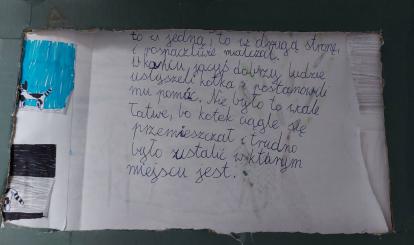 to w jedną, to w drugą stronę,
i rozpaczliwie miałczał.
W końcu jacyś dobrzy ludzie
usłyszeli kotka i postanowili
mu pomóc. Nie było to wcale
łatwe, bo kotek ciągle się
przemieszczał i trudno
było ustalić w którym
miejscu jest.